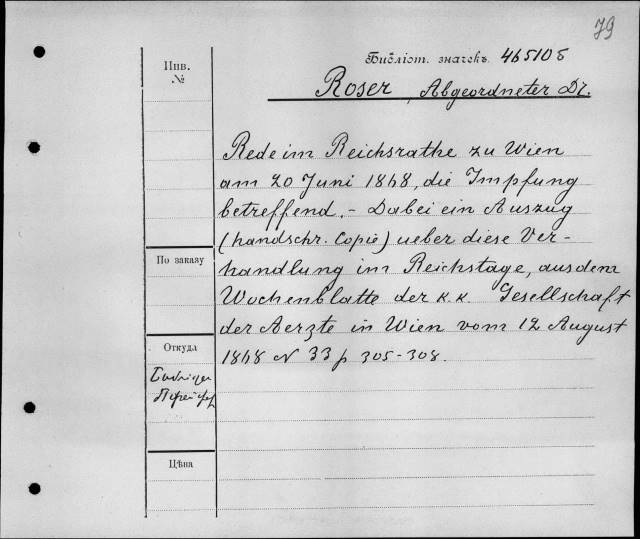 79
Инв.
№
Библіот. значекъ 465105
Roser, Abgeordneter Dr.
Rede im Reichsrathe zu Wien
am 20 Juni 1868, die Impfung
betreffend. - Dabei ein Auszug
(handschr. Copie) ueber diese Ver-
handlung im Reichstage, aus dem
Wochenblatte der k. k. Gesellschaft
der Aerzte in Wien vom 12 August
1868 N 33 p 305-308.
По заказу
Откуда
Цѣна